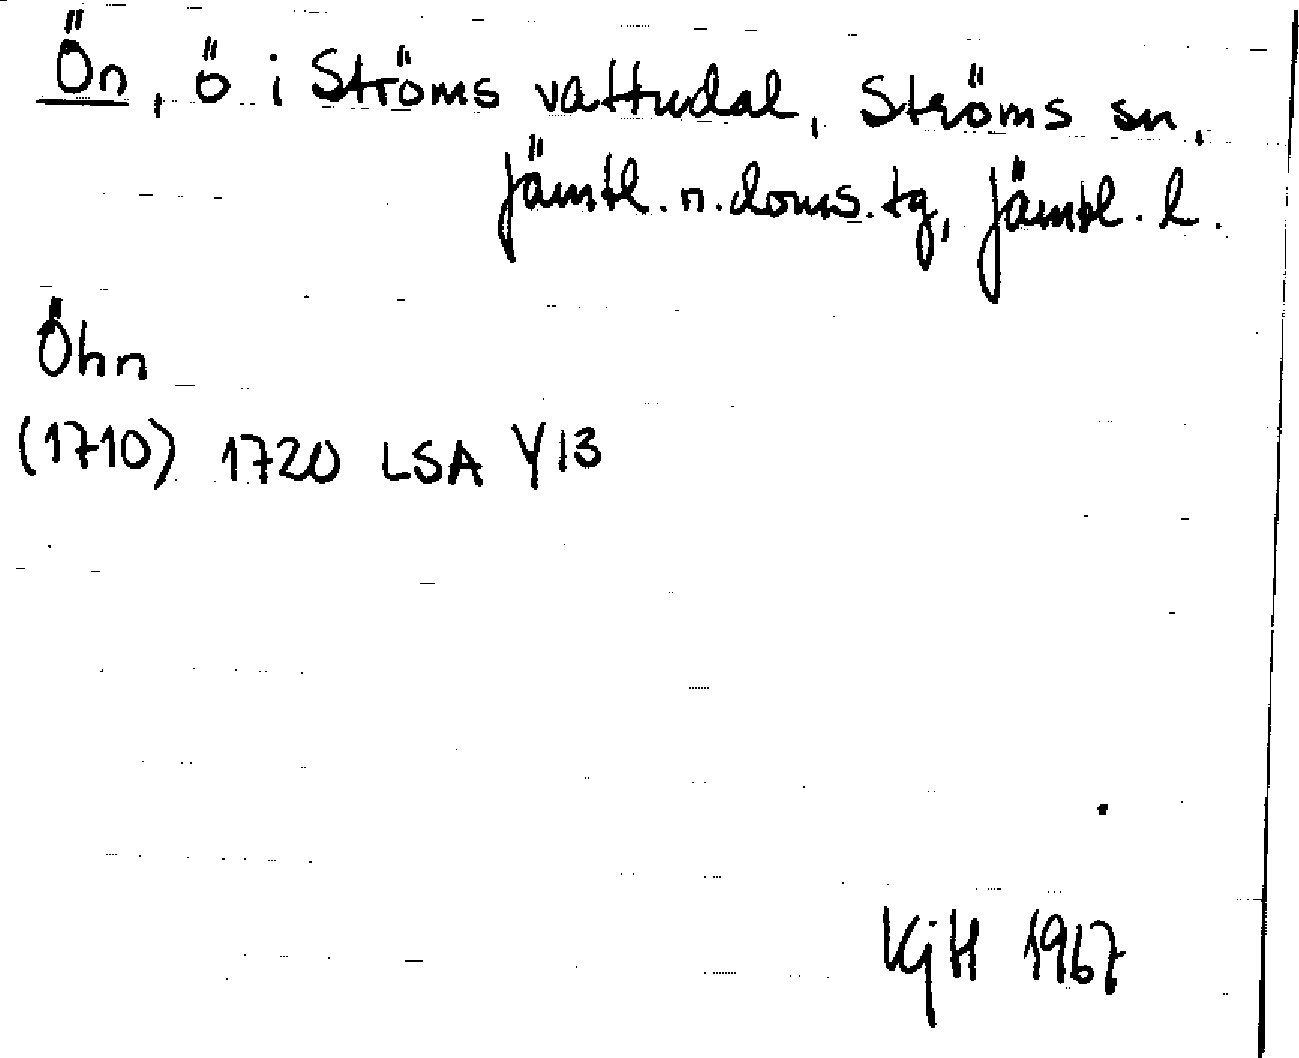 Ön, ö i Ströms vattudal, Ströms sn,
Jämtl. n. doms. tg, Jämtl. l.
Öhn
(1710) 1720 LSA Y13
KjH 1967